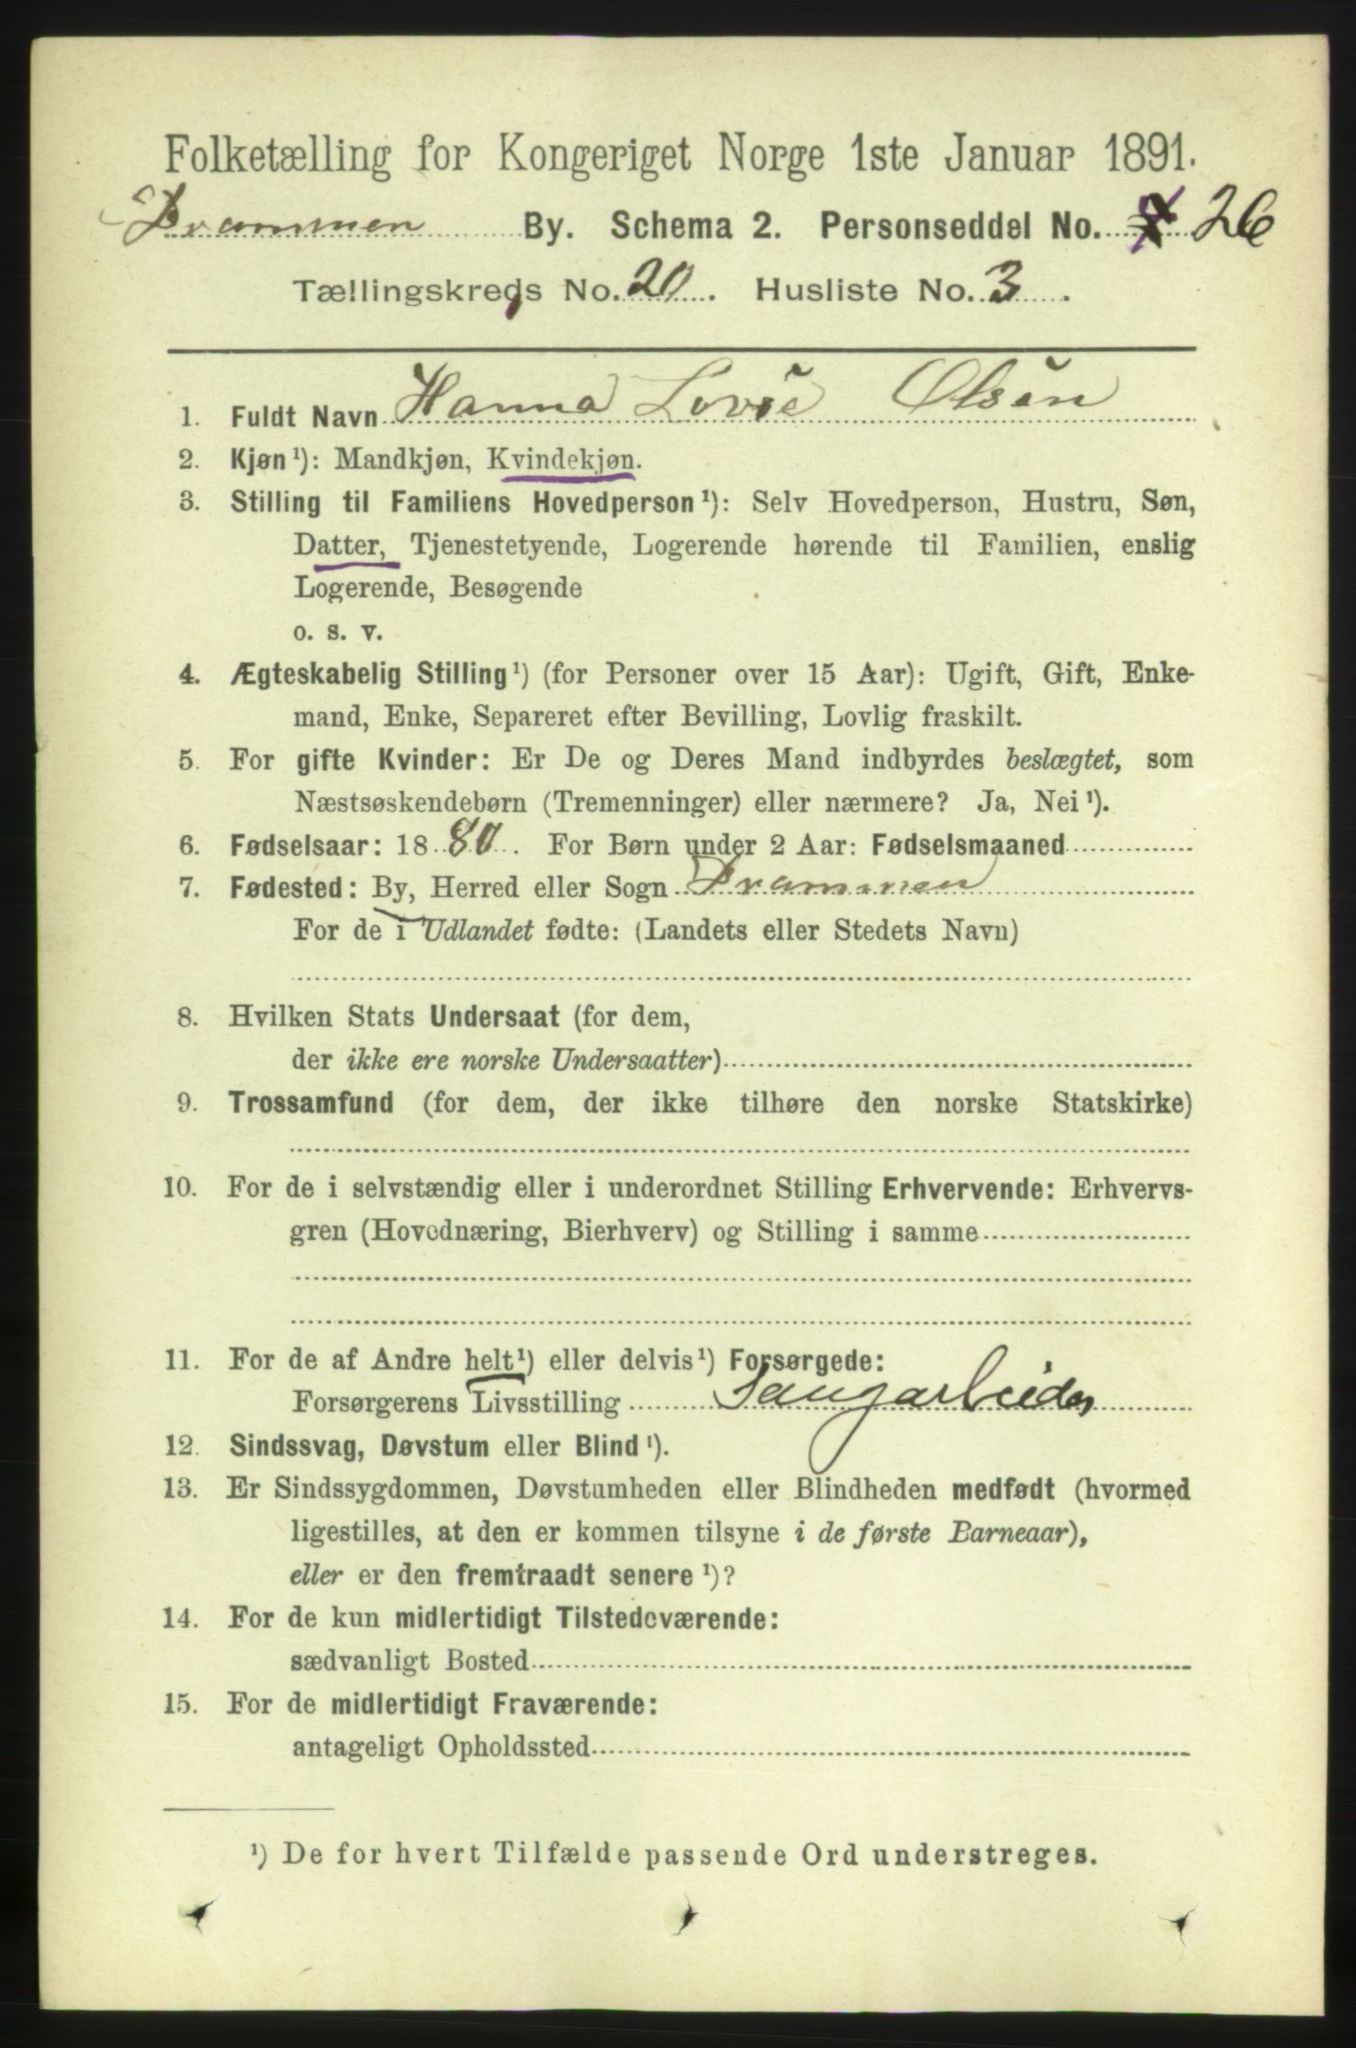 Folketælling for Kongeriget Norge 1ste Januar 1891.
Drammen By. Schema 2. Personseddel No. 26
Tællingskreds No. 20. Husliste No. 3.
1. Fuldt Navn Hanna Lovise Olsen
2. Kjøn¹): Mandkjøn, Kvindekjøn.
3. Stilling til Familiens Hovedperson¹): Selv Hovedperson, Hustru, Søn,
Datter, Tjenestetyende, Logerende hørende til Familien, enslig
Logerende, Besøgende
o. s. v.
4. Ægteskabelig Stilling¹) (for Personer over 15 Aar): Ugift, Gift, Enke-
mand, Enke, Separeret efter Bevilling, Lovlig fraskilt.
5. For gifte Kvinder: Er De og Deres Mand indbyrdes beslægtet, som
Næstsøskendebørn (Tremenninger) eller nærmere? Ja, Nei¹).
6. Fødselsaar: 1880. For Børn under 2 Aar: Fødselsmaaned
7. Fødested: By, Herred eller Sogn Drammen
For de i Udlandet fødte: (Landets eller Stedets Navn)
8. Hvilken Stats Undersaat (for dem,
der ikke ere norske Undersaatter)
9. Trossamfund (for dem, der ikke tilhøre den norske Statskirke)
10. For de i selvstændig eller i underordnet Stilling Erhvervende: Erhvervs-
gren (Hovednæring, Bierhverv) og Stilling i samme
11. For de af Andre helt¹) eller delvis¹) Forsørgede:
Forsørgerens Livsstilling Saugarbeider
12. Sindssvag, Døvstum eller Blind¹).
13. Er Sindssygdommen, Døvstumheden eller Blindheden medfødt (hvormed
ligestilles, at den er kommen tilsyne i de første Barneaar),
eller er den fremtraadt senere¹)?
14. For de kun midlertidigt Tilstedeværende:
sædvanligt Bosted
15. For de midlertidigt Fraværende:
antageligt Opholdssted
¹) De for hvert Tilfælde passende Ord understreges.